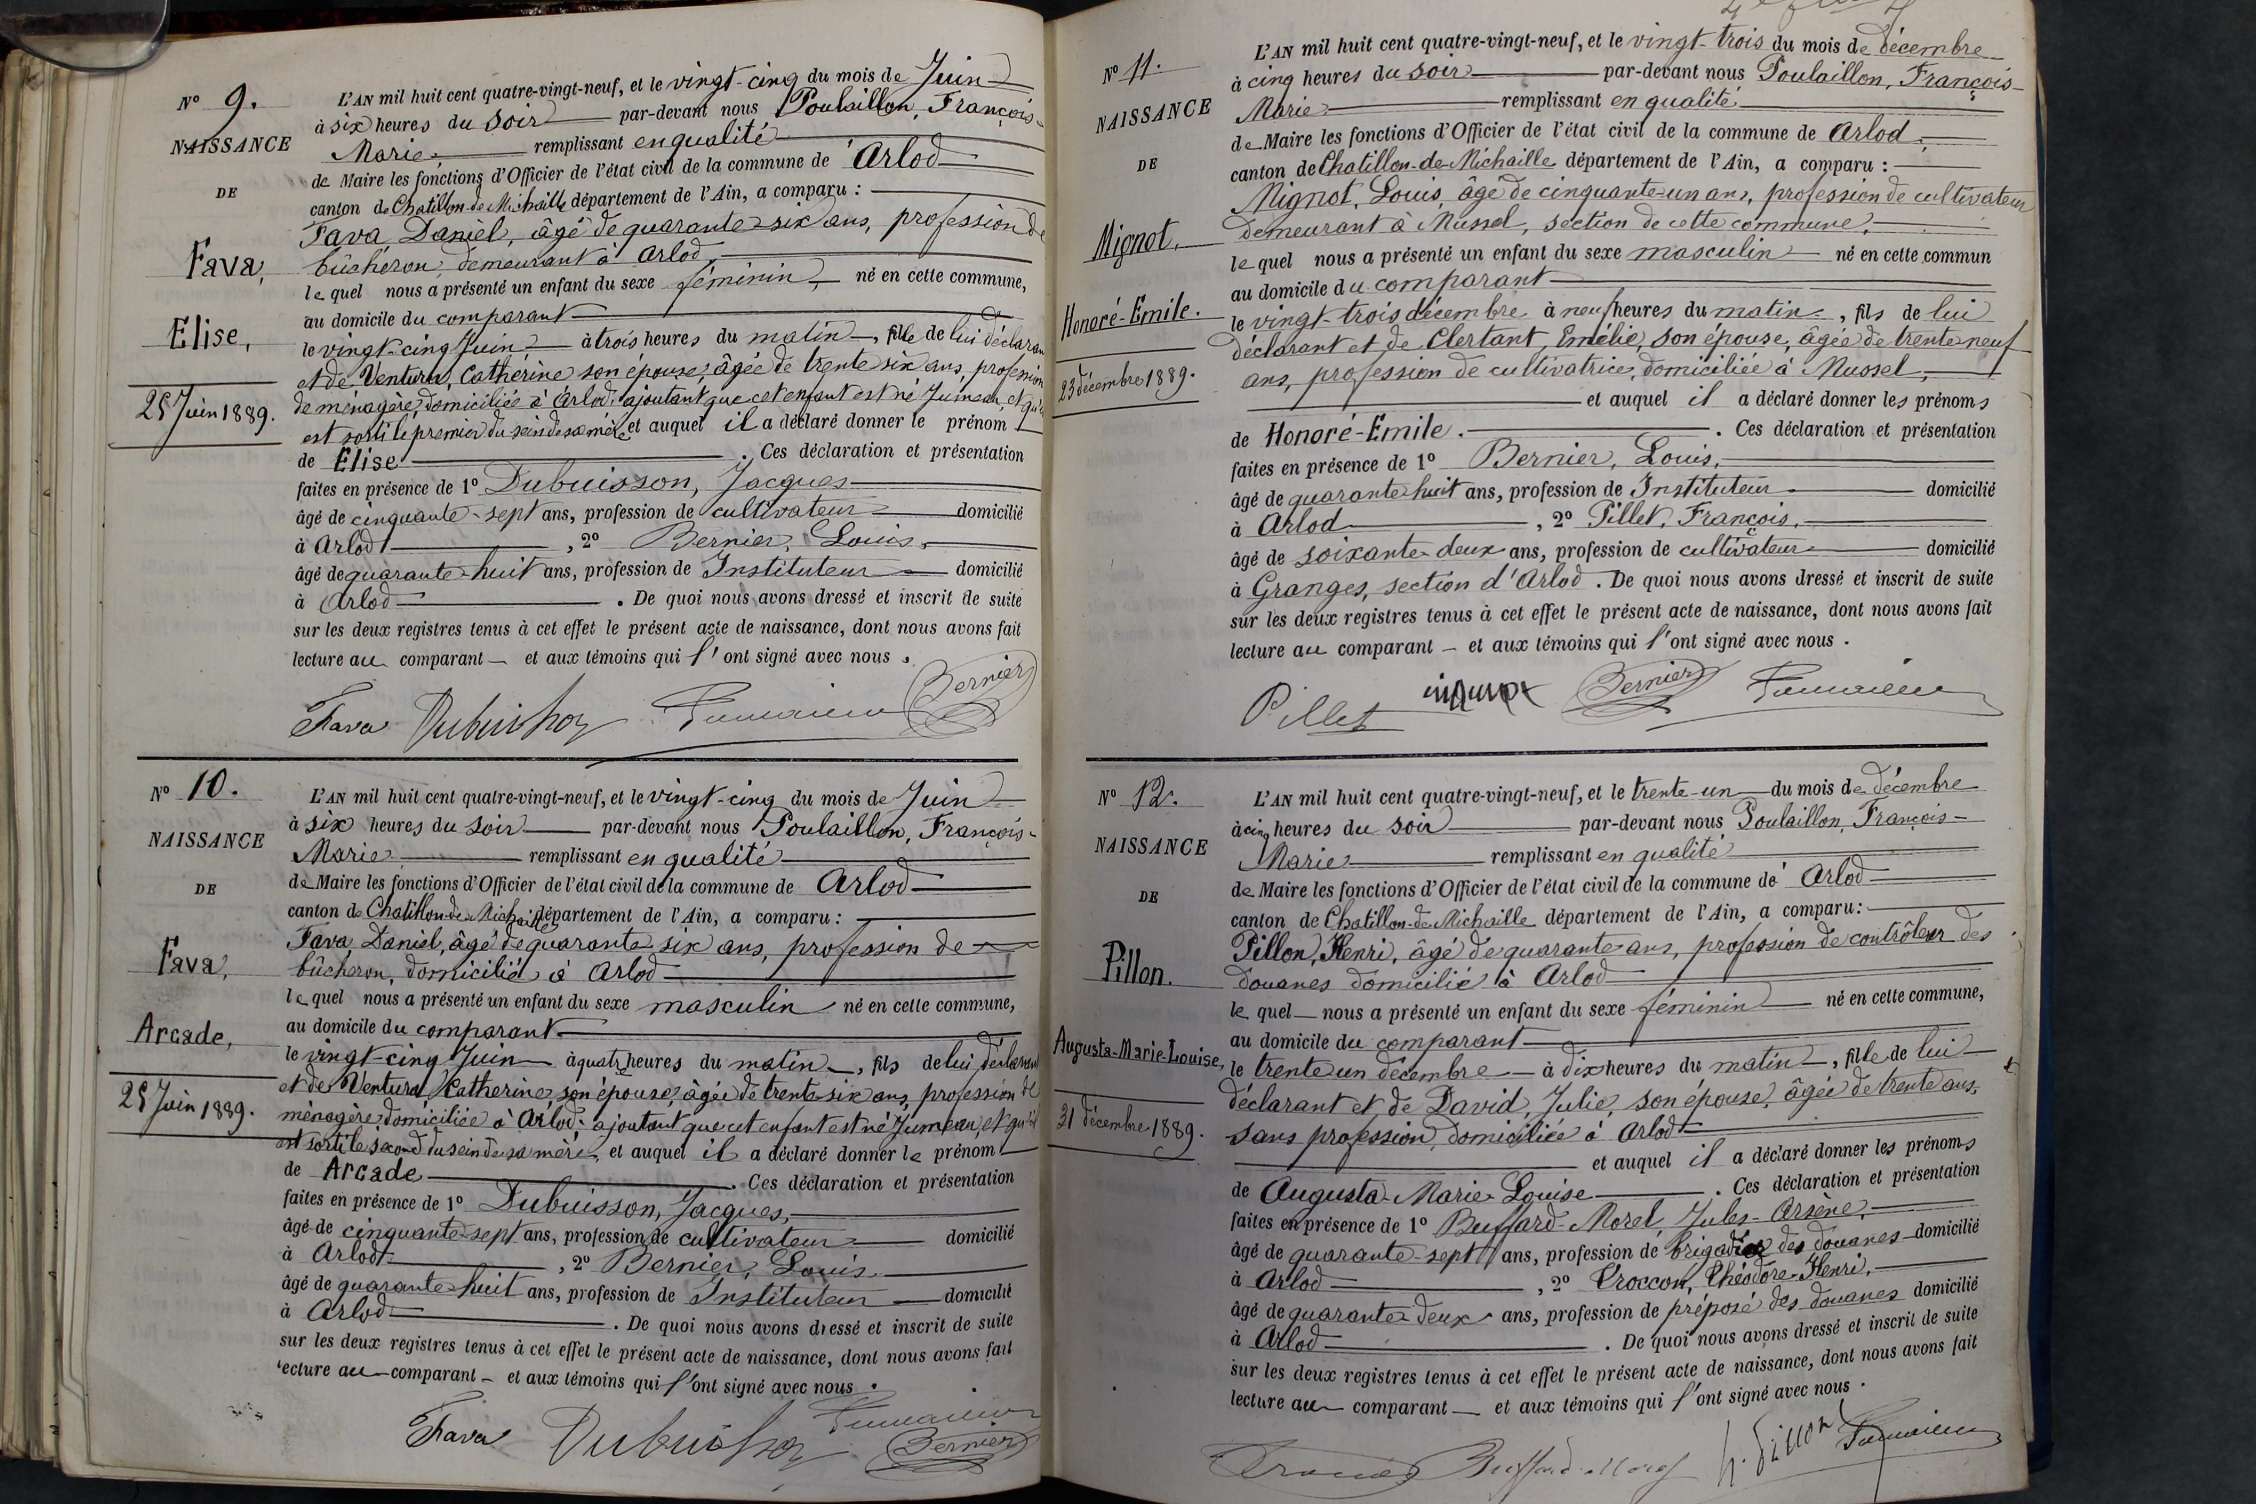 N° 9.
NAISSANCE
DE
Fava,
Elise,
25 Juin 1889.
L'AN mil huit cent quatre-vingt-neuf, et le vingt-cinq du mois de Juin
à six heures du soir par-devant nous Poulaillon, François-
Marie remplissant en qualité
de Maire les fonctions d'Officier de l'état civil de la commune de Arlod
canton de Chatillon-de-Michaille département de l'Ain, a comparu :
Fava, Daniel, âgé de quarante-six ans, profession de
bûcheron, demeurant à Arlod,
lequel nous a présenté un enfant du sexe féminin, né en cette commune,
au domicile du comparant
le vingt-cinq Juin à trois heures du matin, fille de lui déclarant
et de Ventura, Catherine son épouse, âgée de trente six ans, profession
de ménagère, domiciliée à Arlod; ajoutant que cet enfant est né Jumeau, et qu'il
est sorti le premier du sein de sa mère et auquel il a déclaré donner le prénom
de Elise. Ces déclaration et présentation
faites en présence de 1° Dubuisson, Jacques
âgé de cinquante-sept ans, profession de cultivateur domicilié
à Arlod, 2° Bernier, Louis,
âgé de quarante-huit ans, profession de Instituteur domicilié
à Arlod. De quoi nous avons dressé et inscrit de suite
sur les deux registres tenus à cet effet le présent acte de naissance, dont nous avons fait
lecture au comparant et aux témoins qui l'ont signé avec nous.
Fava Dubuisson Bernier
N° 10.
NAISSANCE
DE
Fava,
Arcade,
25 Juin 1889.
L'AN mil huit cent quatre-vingt-neuf, et le vingt-cinq du mois de Juin
à six heures du soir par-devant nous Poulaillon, François-
Marie remplissant en qualité
de Maire les fonctions d'Officier de l'état civil de la commune de Arlod
canton de Chatillon-de-Michaille département de l'Ain, a comparu :
Fava Daniel, âgé de quarante-six ans, profession de
bûcheron, domicilié à Arlod
lequel nous a présenté un enfant du sexe masculin né en cette commune,
au domicile du comparant
le vingt-cinq Juin à quatre heures du matin, fils de lui déclarant
et de Ventura Catherine, son épouse, âgée de trente-six ans, profession de
ménagère, domiciliée à Arlod; ajoutant que cet enfant est né Jumeau, et qu'il
est sorti le second du sein de sa mère, et auquel il a déclaré donner le prénom
de Arcade. Ces déclaration et présentation
faites en présence de 1° Dubuisson, Jacques,
âgé de cinquante-sept ans, profession de cultivateur domicilié
à Arlod, 2° Bernier, Louis
âgé de quarante-huit ans, profession de Instituteur domicilié
à Arlod. De quoi nous avons dressé et inscrit de suite
sur les deux registres tenus à cet effet le présent acte de naissance, dont nous avons fait
lecture au comparant et aux témoins qui l'ont signé avec nous.
Fava Dubuisson Bernier
N° 11.
NAISSANCE
DE
Mignot,
Honoré-Emile.
23 décembre 1889.
L'AN mil huit cent quatre-vingt-neuf, et le vingt-trois du mois de décembre
à cinq heures du soir par-devant nous Poulaillon, François-
Marie remplissant en qualité
de Maire les fonctions d'Officier de l'état civil de la commune de Arlod,
canton de Chatillon-de-Michaille département de l'Ain, a comparu :
Mignot, Louis, âgé de cinquante-un ans, profession de cultivateur
demeurant à Mussel, section de cette commune,
lequel nous a présenté un enfant du sexe masculin né en cette commun
au domicile du comparant
le vingt-trois décembre à neuf heures du matin, fils de lui
déclarant et de Clertant, Emélie, son épouse, âgée de trente-neuf
ans, profession de cultivatrice, domiciliée à Mussel,
et auquel il a déclaré donner les prénoms
de Honoré-Emile. Ces déclaration et présentation
faites en présence de 1° Bernier, Louis,
âgé de quarante-huit ans, profession de Instituteur domicilié
à Arlod, 2° Pillet, François,
âgé de soixante-deux ans, profession de cultivateur domicilié
à Granges, section d'Arlod. De quoi nous avons dressé et inscrit de suite
sur les deux registres tenus à cet effet le présent acte de naissance, dont nous avons fait
lecture au comparant et aux témoins qui l'ont signé avec nous.
Pillet Bernier
N° 12.
NAISSANCE
DE
Pillon.
Augusta-Marie-Louise,
31 décembre 1889.
L'AN mil huit cent quatre-vingt-neuf, et le trente-un du mois de décembre
à cinq heures du soir par-devant nous Poulaillon, François-
Marie remplissant en qualité
de Maire les fonctions d'Officier de l'état civil de la commune de Arlod
canton de Chatillon-de-Michaille département de l'Ain, a comparu :
Pillon, Henri, âgé de quarante ans, profession de contrôleur des
douanes domicilié à Arlod
lequel nous a présenté un enfant du sexe féminin né en cette commune,
au domicile du comparant
le trente un décembre à dix heures du matin, fille de lui
déclarant et de David, Julie, son épouse, âgée de trente ans,
sans profession, domiciliée à Arlod
et auquel il a déclaré donner les prénoms
de Augusta-Marie-Louise. Ces déclaration et présentation
faites en présence de 1° Buffard-Morel, Jules-Arsène,
âgé de quarante-sept ans, profession de brigadier des douanes domicilié
à Arlod, 2° Troccon, Théodore-Henri,
âgé de quarante-deux ans, profession de préposé des douanes domicilié
à Arlod. De quoi nous avons dressé et inscrit de suite
sur les deux registres tenus à cet effet le présent acte de naissance, dont nous avons fait
lecture au comparant et aux témoins qui l'ont signé avec nous.
Buffard-Morel h. Pillon